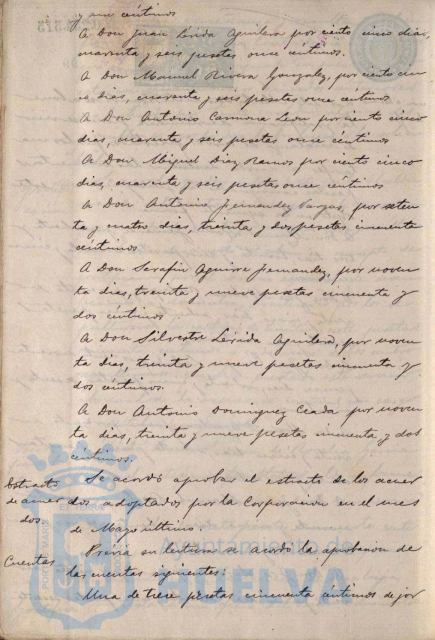 y un céntimos
A Don Juan Lérida Aguilera por ciento cinco dias,
cuarenta y seis pesetas once céntimos.
A Don Manuel Rivera Gonzalez, por ciento cin
co dias, cuarenta y seis pesetas once céntimos
A Don Antonio Carmona Leon por ciento cinco
dias, cuarenta y seis pesetas once céntimos
A Don Miguel Diaz Ramos por ciento cinco
dias, cuarenta y seis pesetas once céntimos
A Don Antonio Fernandez Vargas, por seten
ta y cuatro dias, treinta y dos pesetas cincuenta
céntimos
A Don Serafin Aguirre Fernandez, por noven
ta dias, treinta y nueve pesetas cincuenta y
dos céntimos
A Don Silvestre Lérida Aguilera, por noven
ta dias, treinta y nueve pesetas cincuenta y
dos céntimos.
A Don Antonio Dominguez Ceada por noven
ta dias, treinta y nueve pesetas cincuenta y dos
céntimos.
Extracto
de acuer
dos.
Se acordó aprobar el extracto de los acuer
dos adoptados por la Corporacion en el mes
de Mayo último.
Cuentas
Previa su lectura se acordó la aprobacion de
las cuentas siguientes:
Una de trece pesetas cincuenta céntimos de jor
Ayuntamiento de
HUELVA